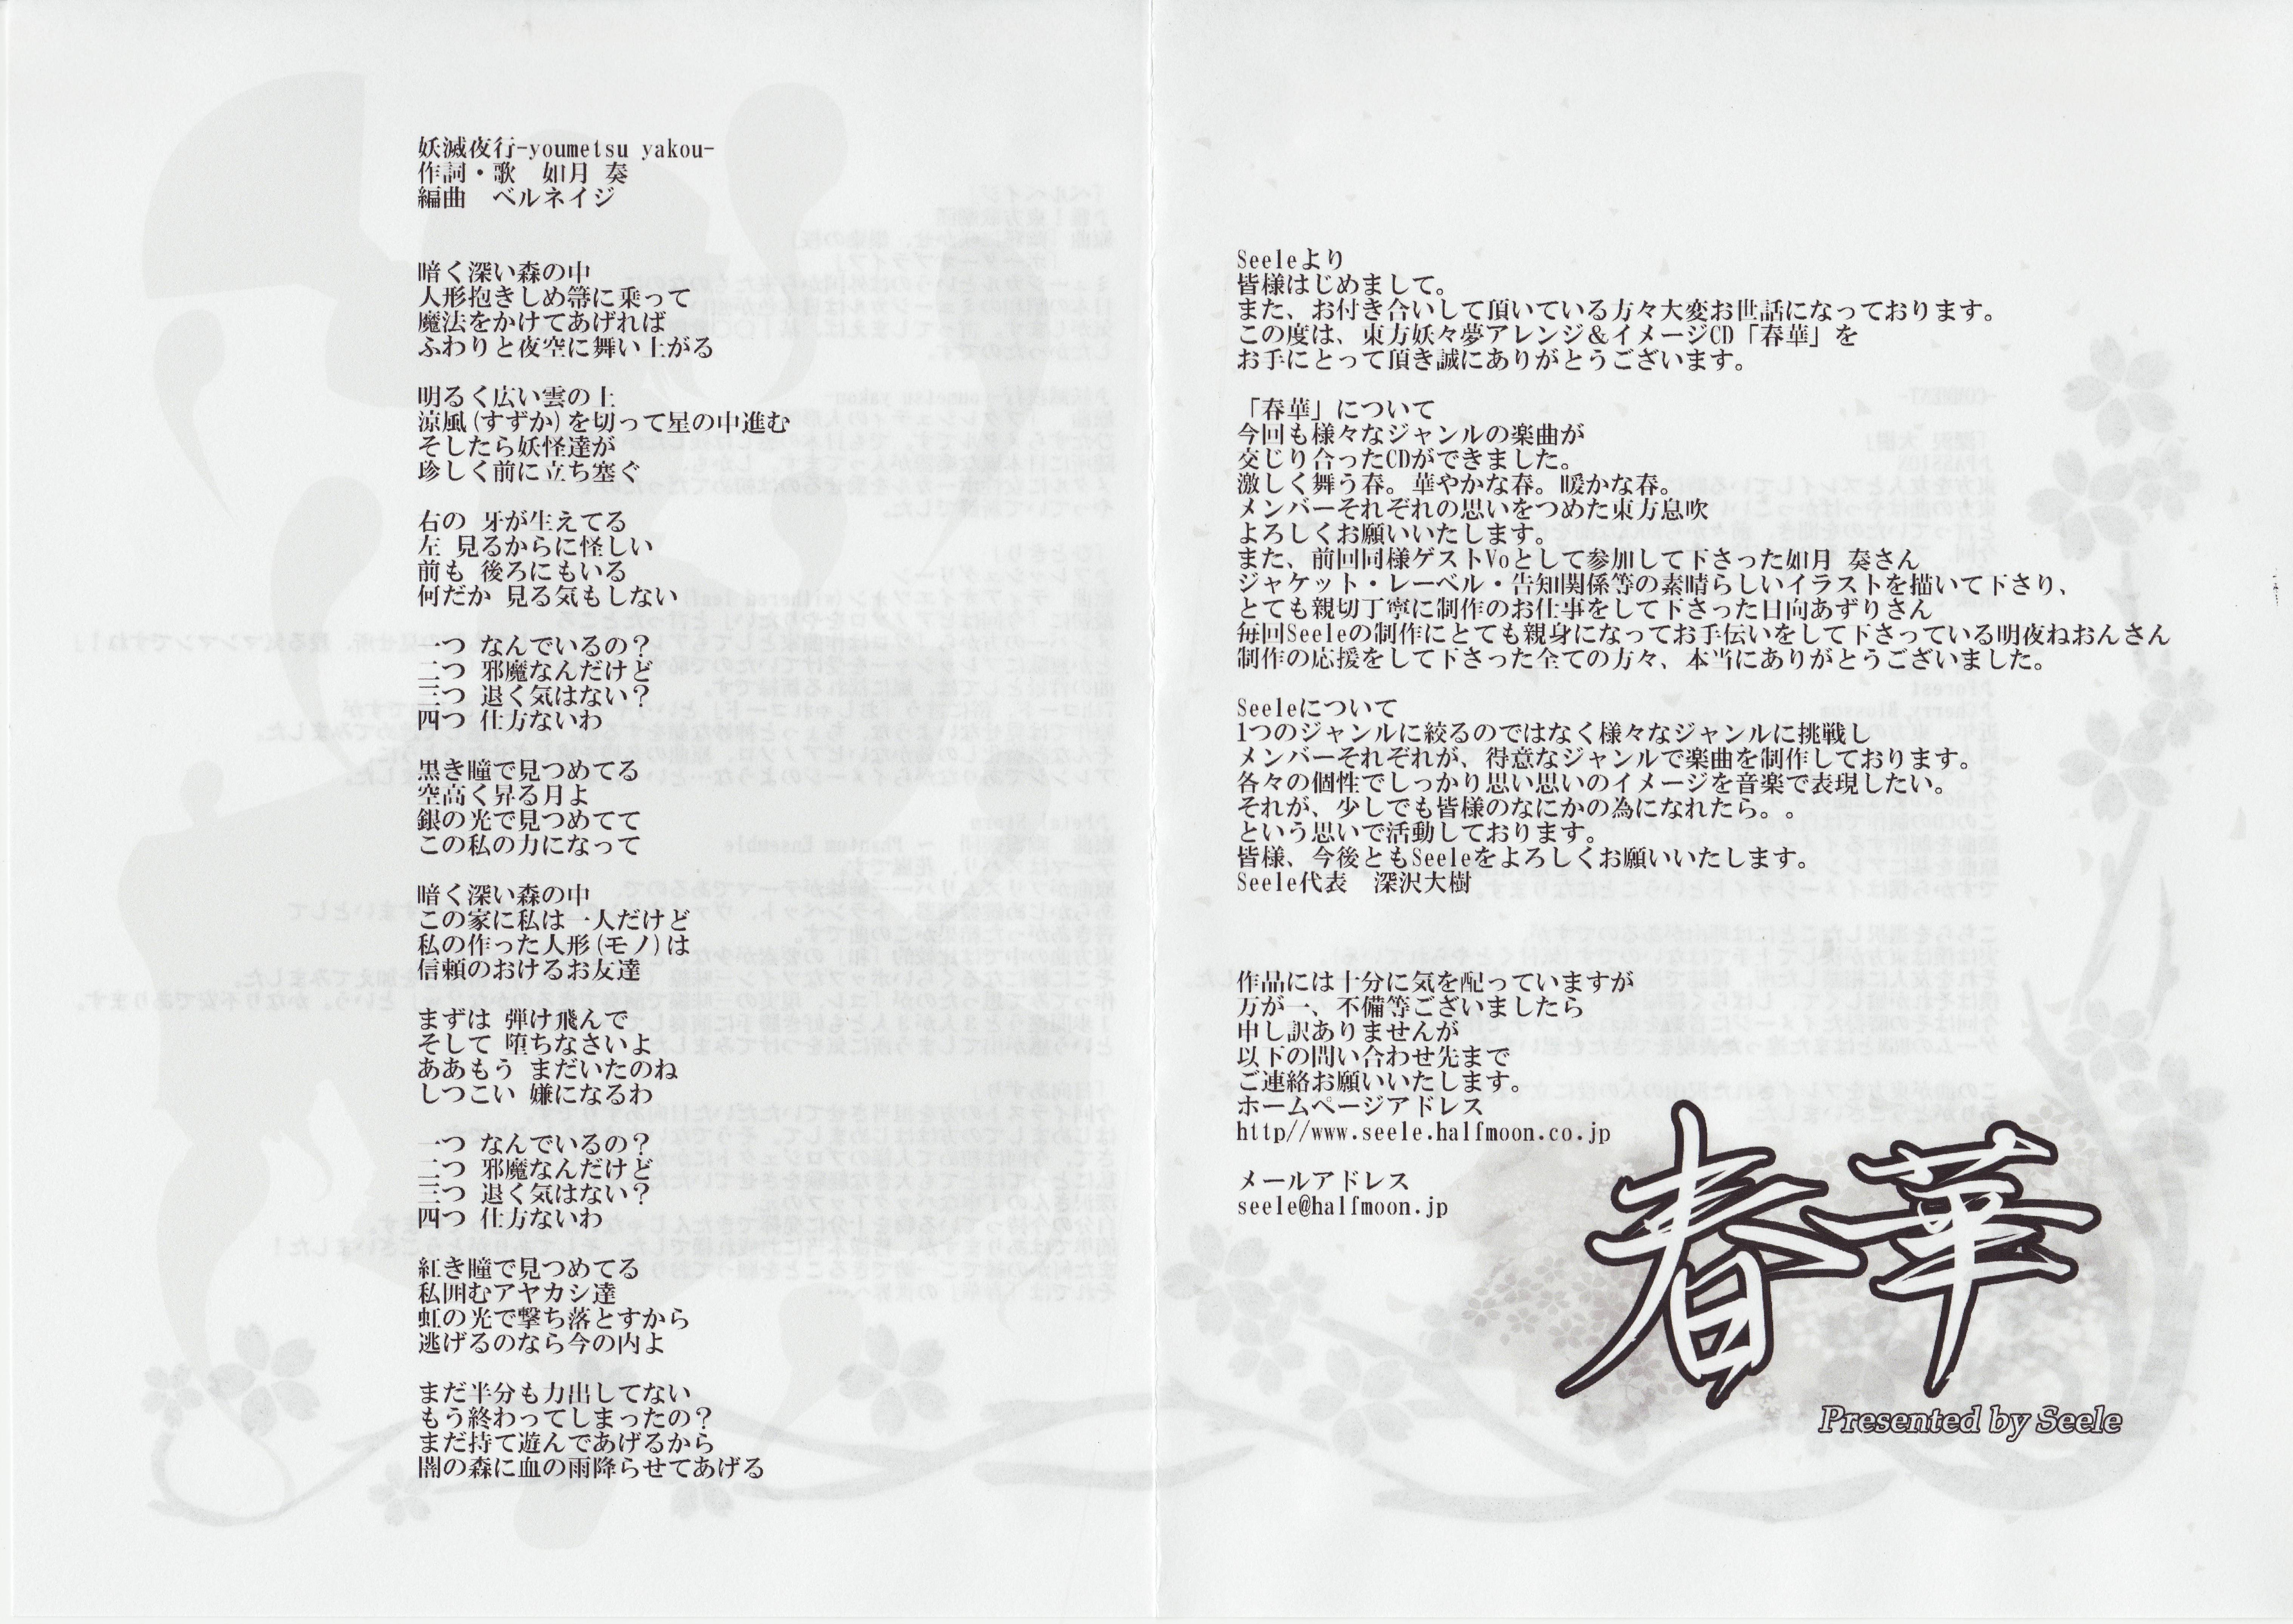 妖滅夜行-youmetsu yakou-
作詞・歌　如月 奏
編曲　ベルネイジ
暗く深い森の中
人形抱きしめ箒に乗って
魔法をかけてあげれば
ふわりと夜空に舞い上がる
明るく広い雲の上
涼風(すずか)を切って星の中進む
そしたら妖怪達が
珍しく前に立ち塞ぐ
右の 牙が生えてる
左 見るからに怪しい
前も 後ろにもいる
何だか 見る気もしない
一つ なんでいるの？
二つ 邪魔なんだけど
三つ 退く気はない？
四つ 仕方ないわ
黒き瞳で見つめてる
空高く昇る月よ
銀の光で見つめてて
この私の力になって
暗く深い森の中
この家に私は一人だけど
私の作った人形(モノ)は
信頼のおけるお友達
まずは 弾け飛んで
そして 堕ちなさいよ
ああもう まだいたのね
しつこい 嫌になるわ
一つ なんでいるの？
二つ 邪魔なんだけど
三つ 退く気はない？
四つ 仕方ないわ
紅き瞳で見つめてる
私囲むアヤカシ達
虹の光で撃ち落とすから
逃げるのなら今の内よ
まだ半分も力出してない
もう終わってしまったの？
まだ持て遊んであげるから
闇の森に血の雨降らせてあげる
Seeleより
皆様はじめまして。
また、お付き合いして頂いている方々大変お世話になっております。
この度は、東方妖々夢アレンジ＆イメージCD「春華」を
お手にとって頂き誠にありがとうございます。
「春華」について
今回も様々なジャンルの楽曲が
交じり合ったCDができました。
激しく舞う春。華やかな春。暖かな春。
メンバーそれぞれの思いをつめた東方息吹
よろしくお願いいたします。
また、前回同様ゲストVoとして参加して下さった如月 奏さん
ジャケット・レーベル・告知関係等の素晴らしいイラストを描いて下さり、
とても親切丁寧に制作のお仕事をして下さった日向あずりさん
毎回Seeleの制作にとても親身になってお手伝いをして下さっている明夜ねおんさん
制作の応援をして下さった全ての方々、本当にありがとうございました。
Seeleについて
1つのジャンルに絞るのではなく様々なジャンルに挑戦し
メンバーそれぞれが、得意なジャンルで楽曲を制作しております。
各々の個性でしっかり思い思いのイメージを音楽で表現したい。
それが、少しでも皆様のなにかの為になれたら。。
という思いで活動しております。
皆様、今後ともSeeleをよろしくお願いいたします。
Seele代表　深沢大樹
作品には十分に気を配っていますが
万が一、不備等ございましたら
申し訳ありませんが
以下の問い合わせ先まで
ご連絡お願いいたします。
ホームページアドレス
http//www.seele.halfmoon.co.jp
メールアドレス
seele@halfmoon.jp
春華
Presented by Seele